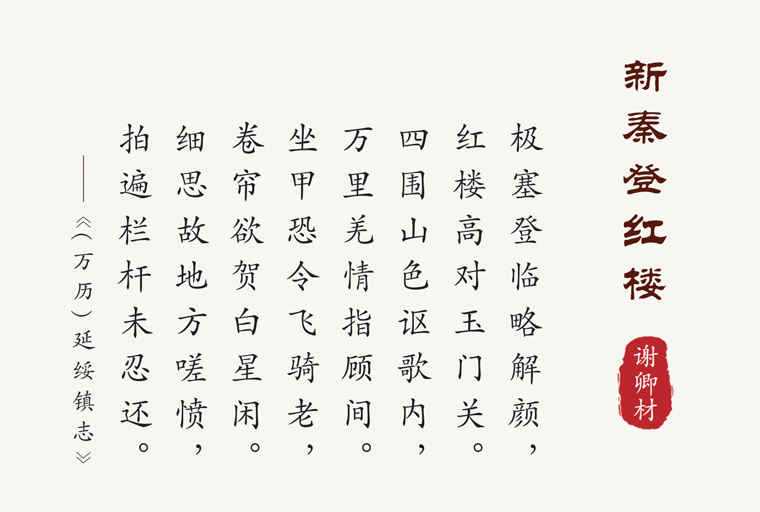 新秦登红楼
谢卿材
极塞登临略解颜，
红楼高对玉门关。
四围山色讴歌内，
万里羌情指顾间。
坐甲恐令飞骑老，
卷帘欲贺白星闲。
细思故地方嗟愤，
拍遍栏杆未忍还。
——《（万历）延绥镇志》